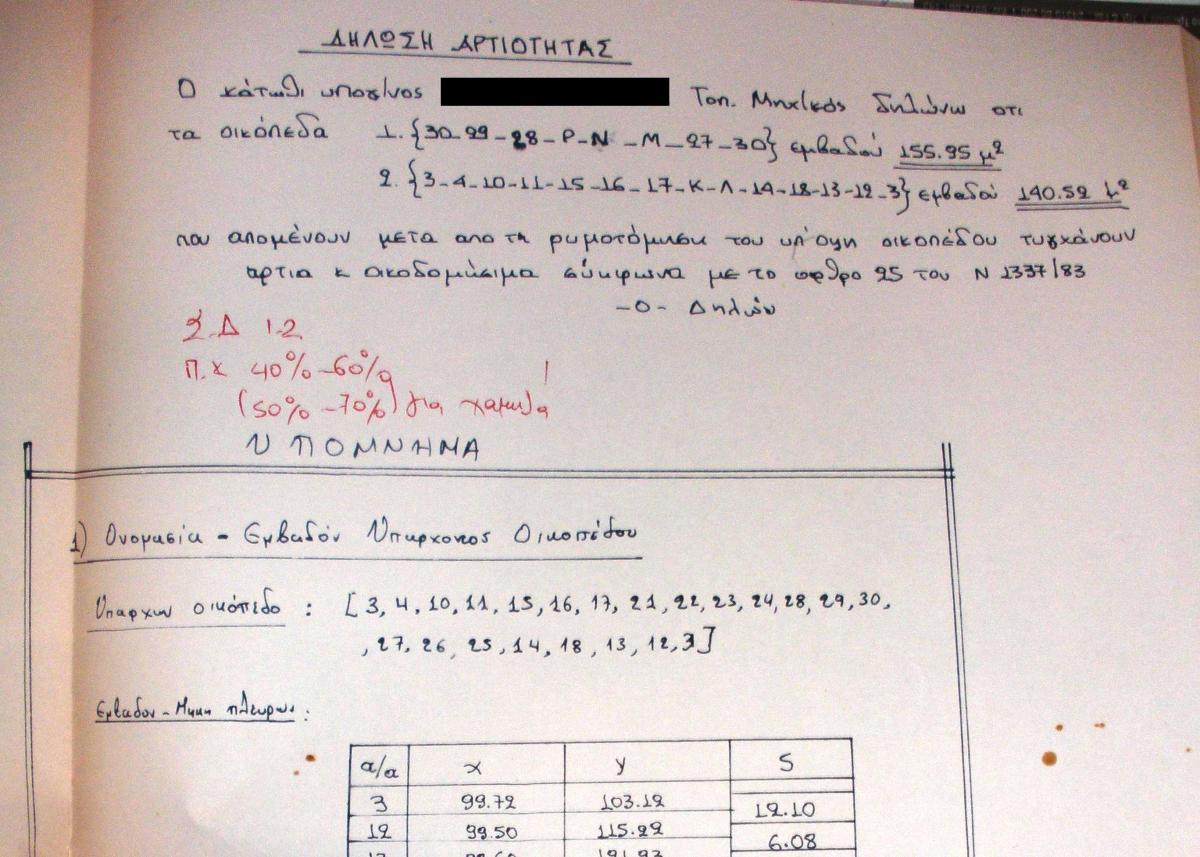 ΔΗΛΩΣΗ ΑΡΤΙΟΤΗΤΑΣ
Ο κάτωθι υπογ/νος Τοπ. Μηχ/κός δηλώνω οτι
τα οικόπεδα 1. {30-29-28-Ρ-Ν-Μ-27-30} εμβαδού 155.95 μ²
2. {3-4-10-11-15-16-17-Κ-Λ-14-18-13-12-3} εμβαδού 140.52 μ²
που απομένουν μετα απο τη ρυμοτόμιση του υπ'οψη οικοπέδου τυγχάνουν
αρτια κ οικοδομήσιμα σύμφωνα με το αρθρο 25 του Ν 1337/83
-Ο- Δηλών
Σ.Δ 1.2
Π.Κ 40% -60%
(50% -70%) για χαμηλα
ΥΠΟΜΝΗΜΑ
1) Ονομασία - Εμβαδόν Υπαρχοντος Οικοπέδου
Υπαρχων οικόπεδο : [3, 4, 10, 11, 15, 16, 17, 21, 22, 23, 24, 28, 29, 30,
, 27, 26, 25, 14, 18, 13, 12, 3]
Εμβαδον - Μηκη πλευρων :
α/α x y S
3 99.72 103.12 12.10
12 99.50 115.22 6.08